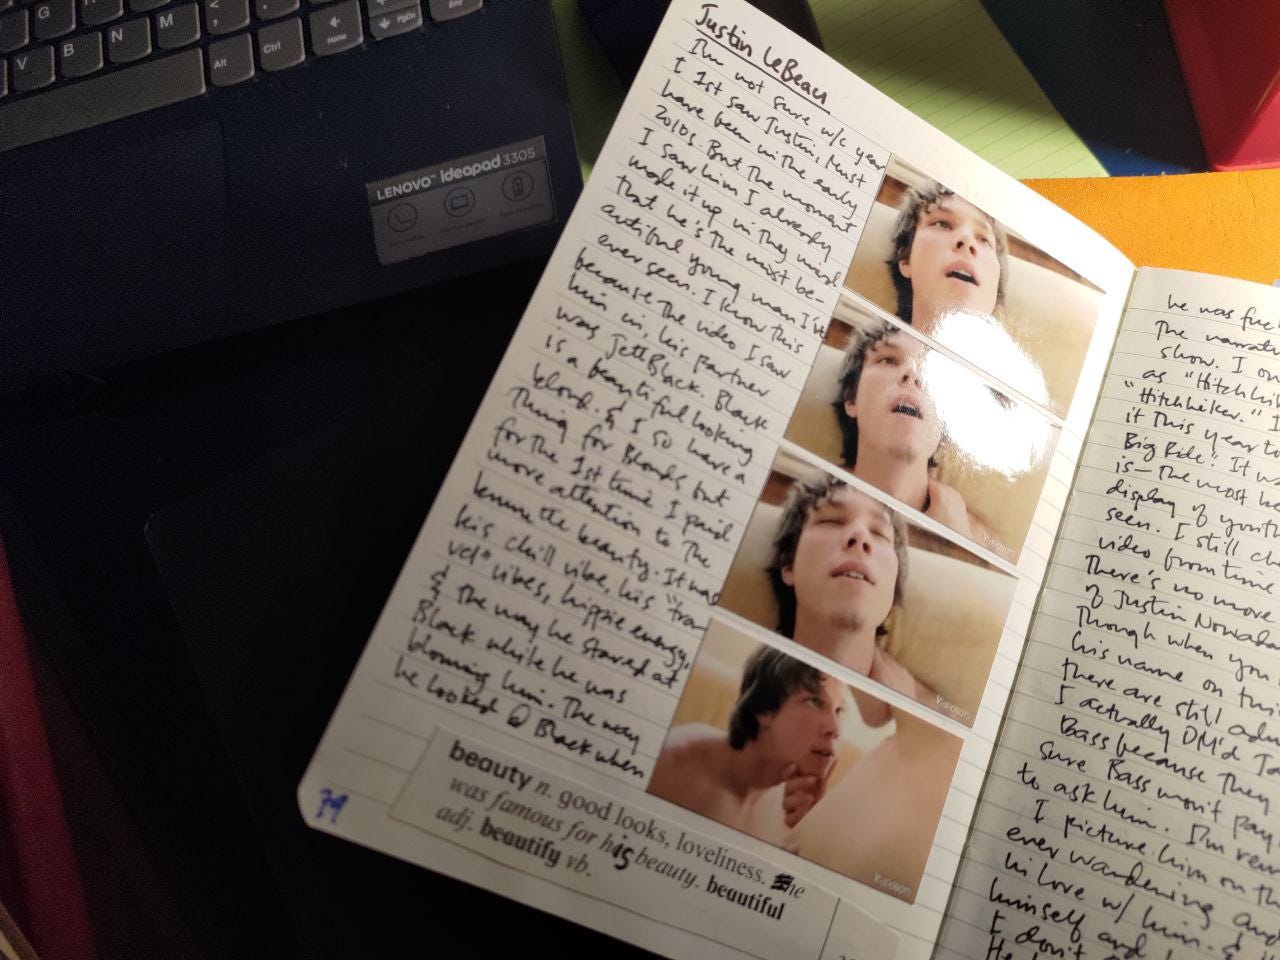 G
H
J
V
B
N
M
Alt
Ctrl
Home
PgDn
End
LENOVO™ ideapad 330S
Justin LeBeau
I'm not sure w/c year
I 1st saw Justin, Must
have been in the early
2010s. But the moment
I saw him I already
made it up in my mind
that he's the most be-
autiful young man I've
ever seen. I know this
because the video I saw
him in, his partner
was Jett Black. Black
is a beautiful looking
blond. & I so have a
thing for Blonds but
for the 1st time I paid
more attention to the
brunette beauty. It was
his chill vibe, his "tra
vel" vibes, hippie energy,
& the way he stared at
Black while he was
blowing him. The way
he looked @ Black when
beauty n. good looks, loveliness. he
was famous for his beauty. beautiful
adj. beautify vb.
79
Videoson
Videoson
Videoson
he was
the
show. I
as "Hitchhik
"Hitchhiker." I
it this year to
Big Ride! It wa
is—the most
display of youth
seen. I still
video from time
There's no more
of Justin Nowada
though when you
his name on
there are still
I actually DM'd
Bass because they
sure Bass won't pay
to ask him. I'm
I picture him on th
ever wandering and
in love w/ him. &
himself and
I don't
He